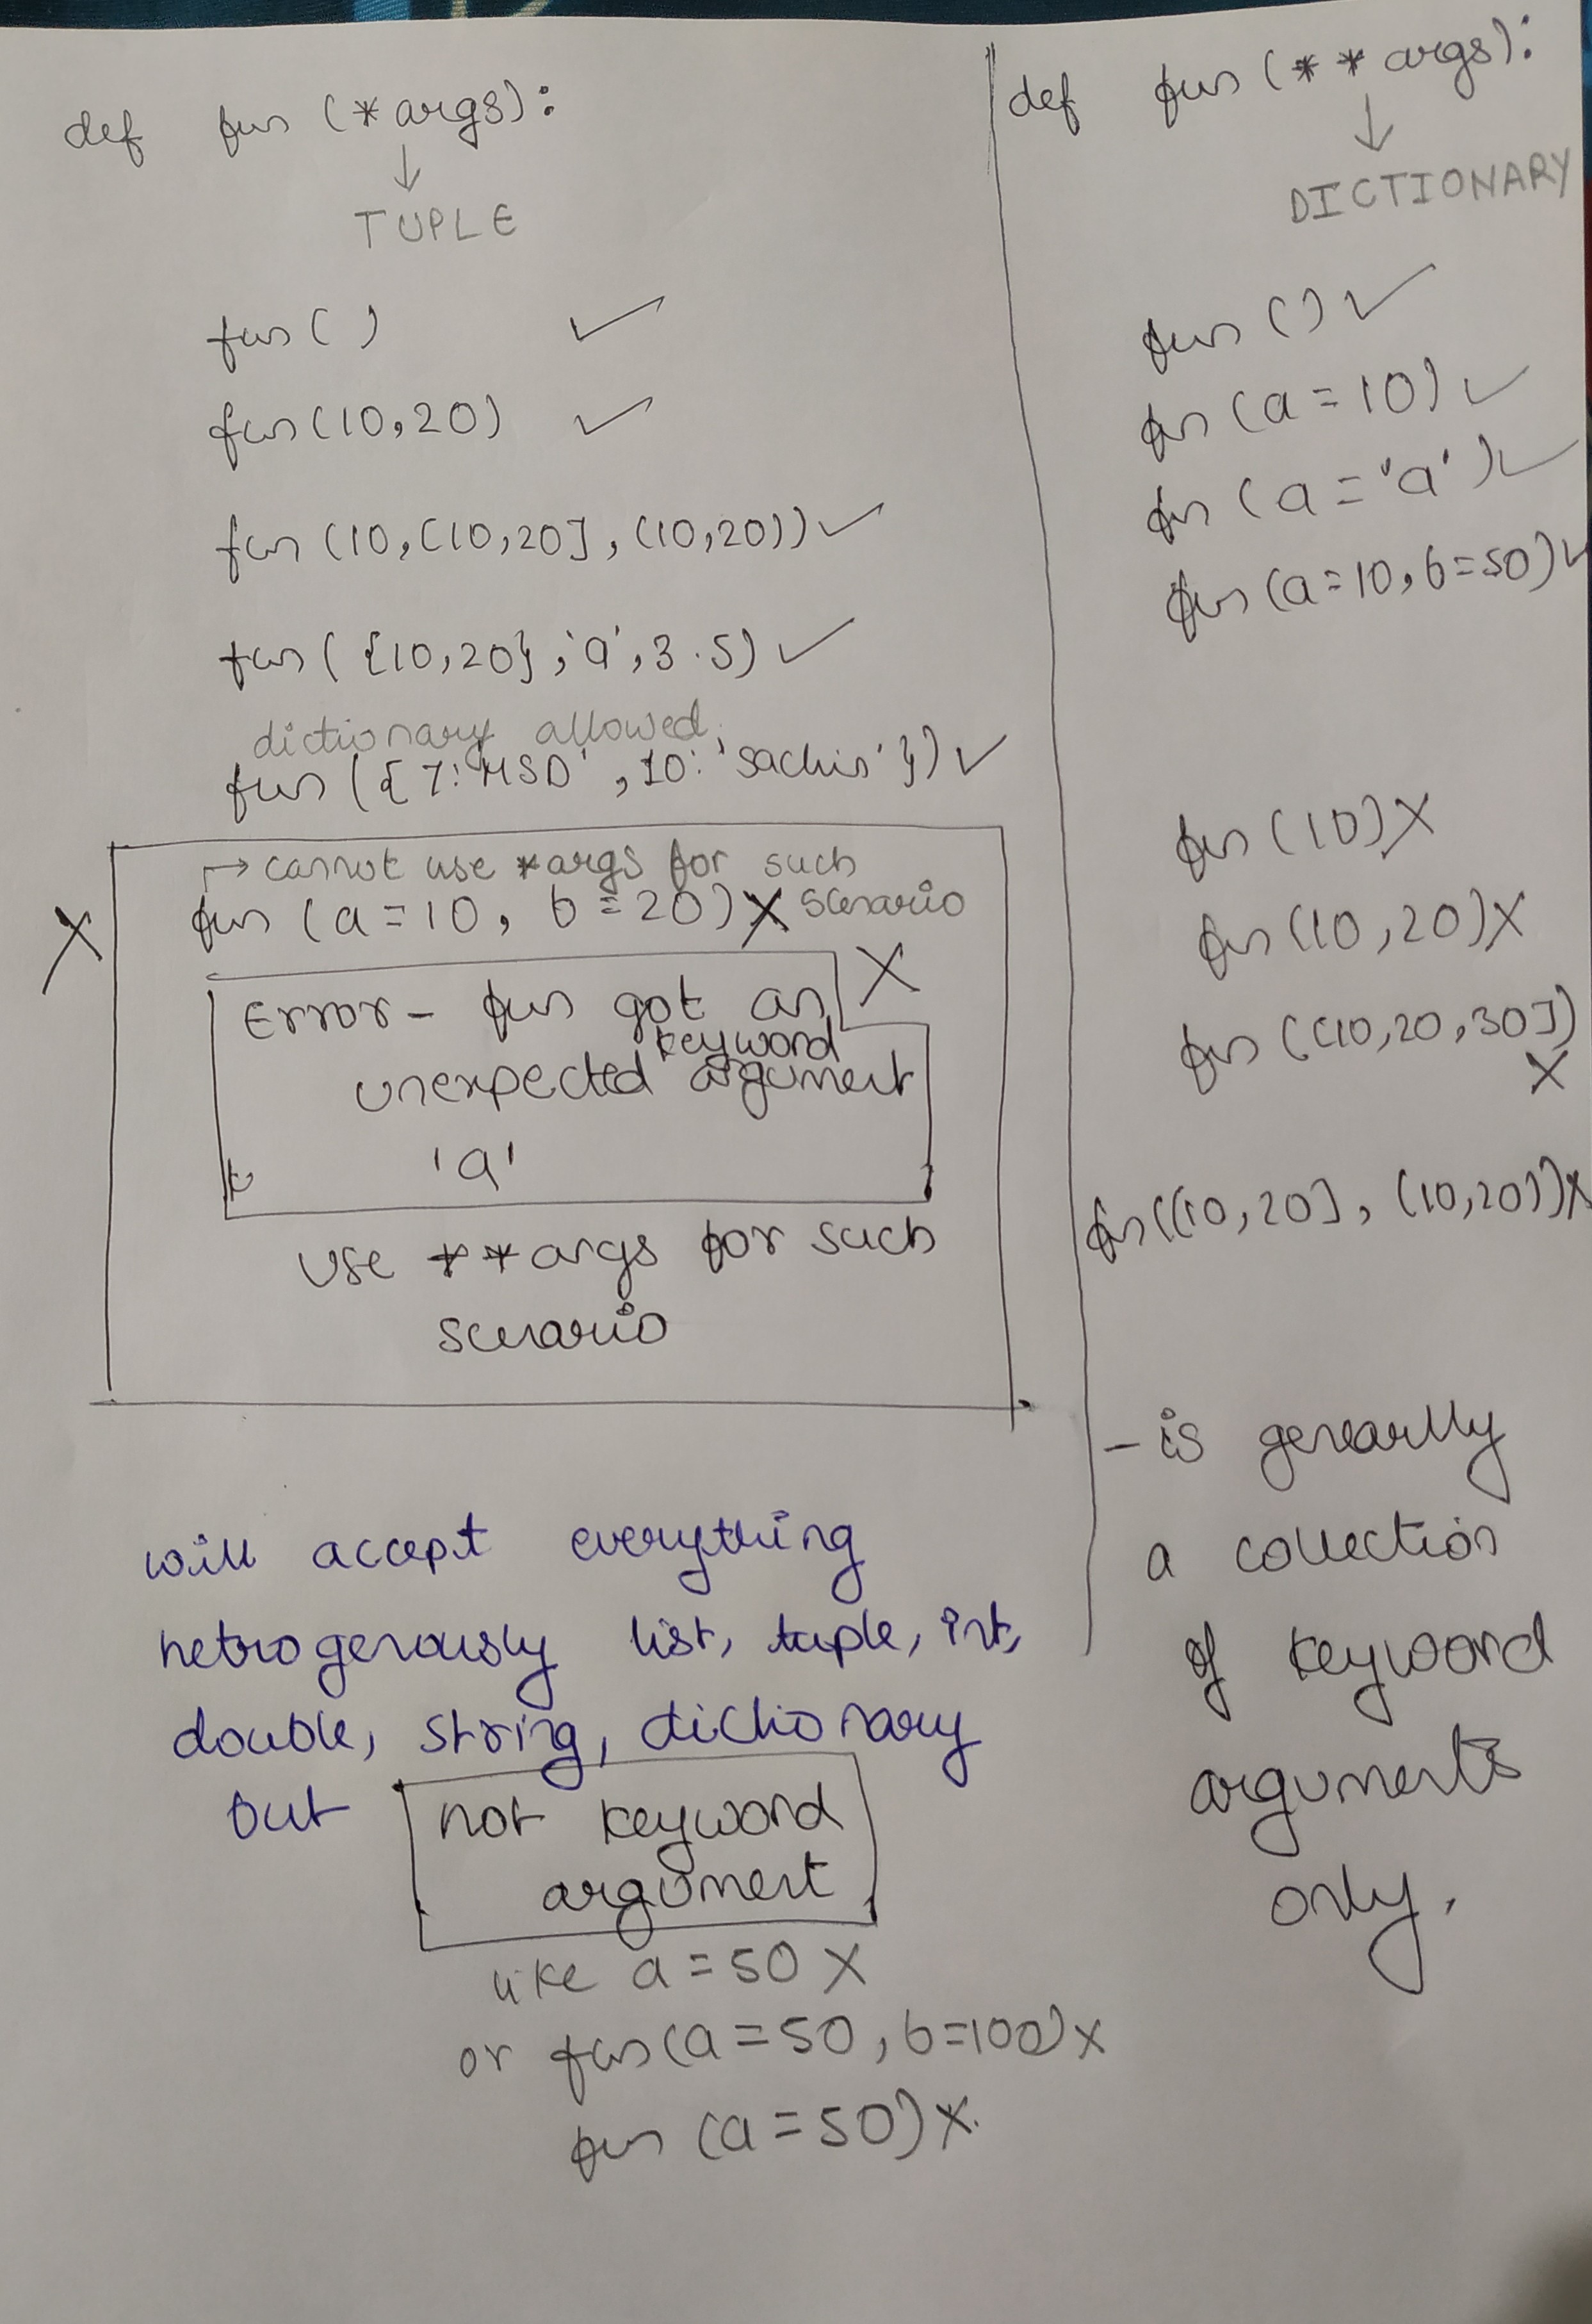 def fun (*args):
↓
TUPLE
fun( ) ✓
fun(10,20) ✓
fun (10,[10,20], (10,20)) ✓
fun ( {10,20}, 'a', 3.5) ✓
dictionary allowed,
fun ({ 7:'MSD' , 10: 'sachin' }) ✓
→ cannot use *args for such
X fun (a=10, b=20) X scenario
Error - fun got an X
keyword
unexpected argument
'a'
use **args for such
scenario
will accept everything
hetrogenously list, tuple, int,
double, string, dictionary
but not keyword
argument
like a=50 X
or fun(a=50, b=100) X
fun (a=50) X.
def fun (**args):
↓
DICTIONARY
fun () ✓
fun (a=10) ✓
fun (a='a') ✓
fun (a=10, b=50) ✓
fun (10) X
fun (10,20) X
fun ([10,20,30])
X
fun([10,20], (10,20)) X
- is genearlly
a collection
of keyword
arguments
only.